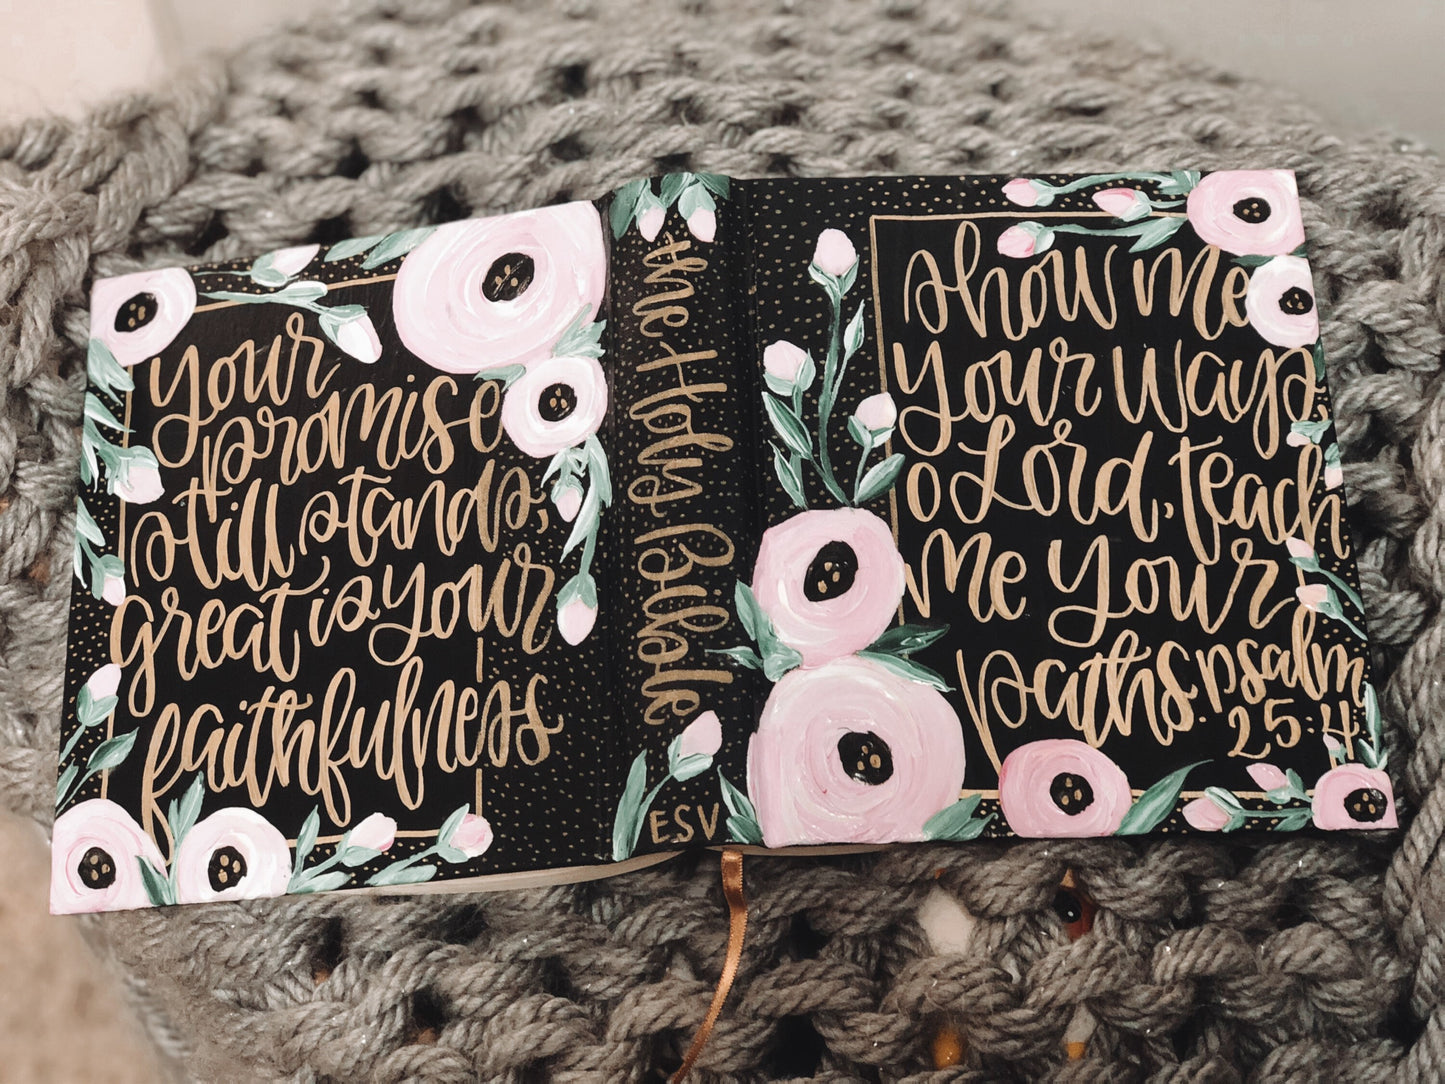 your
promise
still stands,
great is your
faithfulness
the Holy Bible
ESV
show me
your ways,
o Lord, teach
me your
paths. psalm
25:4